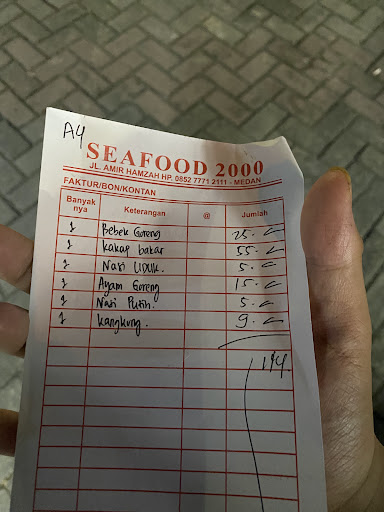 A4
SEAFOOD 2000
JL. AMIR HAMZAH HP. 0852 7771 2111 - MEDAN
FAKTUR/BON/KONTAN
Banyak nya Keterangan @ Jumlah
1 Bebek Goreng 25.
1 kakap bakar 55.
1 Nasi UDUK. 5.
1 Ayam Goreng 15.
1 Nasi Putih. 5.
1 kangkung. 9.
114